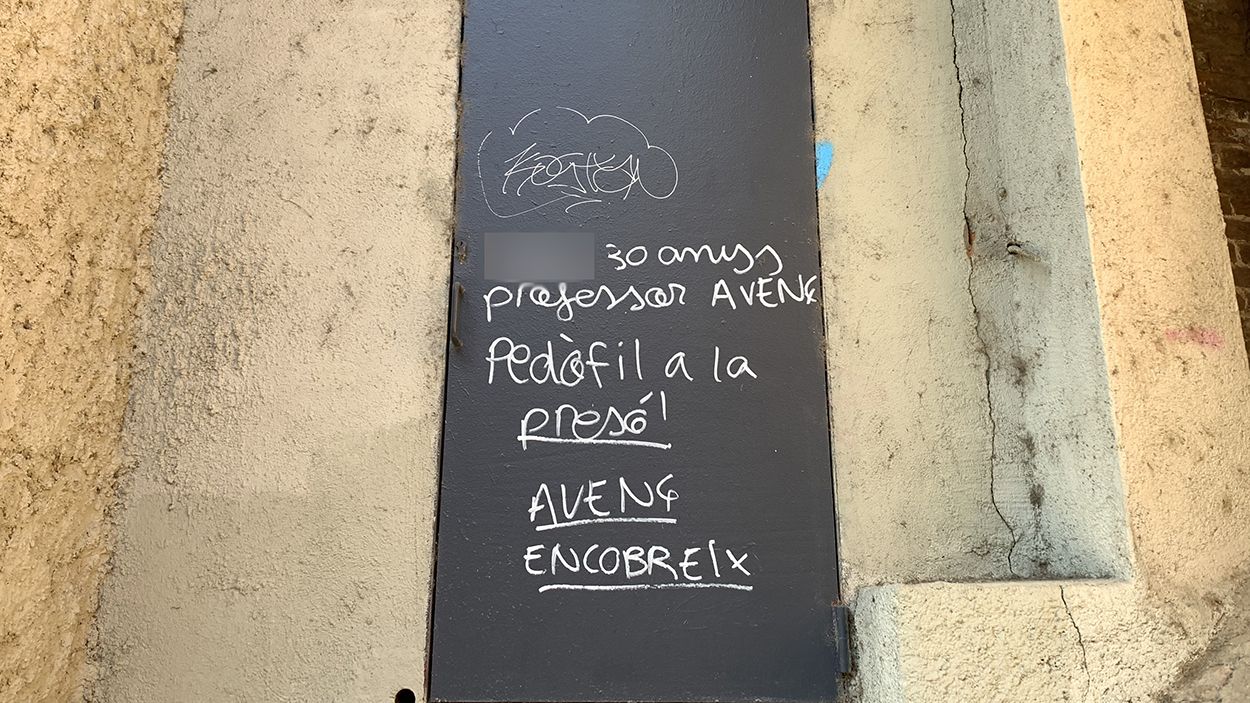 30 anys
professor AVENÇ
Pedòfil a la
presó!
AVENÇ
ENCOBREIX